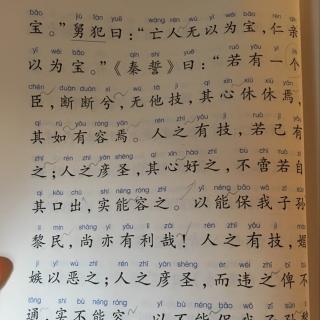 bǎo jiù fàn yuē wáng rén wú yǐ wéi bǎo rén qīn
宝。”舅犯曰：“亡人无以为宝，仁亲
yǐ wéi bǎo qín shì yuē ruò yǒu yí gè
以为宝。”《秦誓》曰：“若有一个
chén duàn duàn xī wú tā jì qí xīn xiū xiū yān
臣，断断兮，无他技，其心休休焉，
qí rú yǒu róng yān rén zhī yǒu jì ruò jǐ yǒu
其如有容焉。人之有技，若己有
zhī rén zhī yàn shèng qí xīn hào zhī bú chì ruò zì
之；人之彦圣，其心好之，不啻若自
qí kǒu chū shí néng róng zhī yǐ néng bǎo wǒ zǐ sūn
其口出，实能容之。以能保我子孙
lí mín shàng yì yǒu lì zāi rén zhī yǒu jì
黎民，尚亦有利哉！人之有技，媢
jí yǐ wù zhī rén zhī yàn shèng ér wéi zhī bǐ bù
嫉以恶之；人之彦圣，而违之俾不
tōng shí bù néng róng yǐ bù néng bǎo wǒ zǐ sūn
通，实不能容，以不能保我子孙